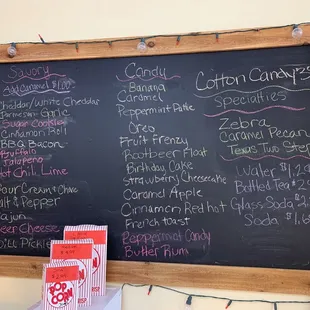 Savory
Add Caramel $1.00
Cheddar/White Cheddar
Parmesan Garlic
Sugar Cookie
Cinnamon Roll
BBQ Bacon
Buffalo
Jalapeno
Hot Chili Lime
Sour Cream & Chive
Salt & Pepper
Cajun
Beer Cheese
Dill Pickle
Candy
Banana
Caramel
Peppermint Patte
Oreo
Fruit Frenzy
Rootbeer Float
Birthday Cake
Strawberry Cheesecake
Caramel Apple
Cinnamon Red hot
French toast
Peppermint Candy
Butter Rum
Cotton Candy
Specialties
Zebra
Caramel Pecan
Texas Two Step
Water
Bottled Tea
Glass Soda
Soda
POP
CORN